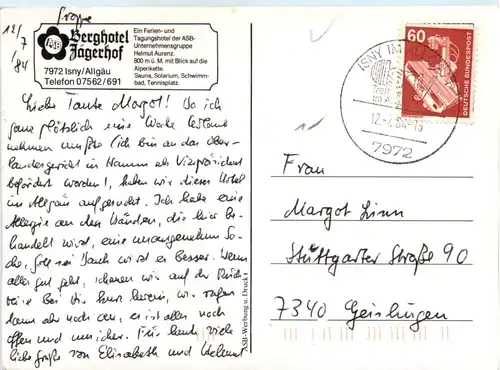 12/7/84
Berghotel
Jägerhof
7972 Isny/Allgäu
Telefon 07562/691
Ein Ferien- und
Tagungshotel der ASB-
Unternehmensgruppe
Helmut Aurenz.
800 m ü. M. mit Blick auf die
Alpenkette.
Sauna, Solarium, Schwimm-
bad, Tennisplatz.
Liebe Tante Margot! Da ich
ganz plötzlich eine Woche Urlaub
nehmen mußte (ich bin an das Ober-
landesgericht in Hamm als Vizepräsident
befördert worden), haben wir dieses Hotel
im Allgäu aufgesucht. Ich habe eine
Allergie an den Händen, die hier be-
handelt wird, eine unangenehme Sa-
che, Gott sei Dank wird es besser. Wenn
alles gut geht, schauen wir auf der Rück-
reise bei Dir kurz herein, wir rufen
dann aber noch an, es ist alles noch
offen und unsicher. Für heute viele
liebe Grüße von Elisabeth und Helmut
ASB-Werbung u. Druck
60
DEUTSCHE BUNDESPOST
ISNY IM
12.-7.84-15
7972
Frau
Margot Linn
Stuttgarter Straße 90
7340 Geislingen